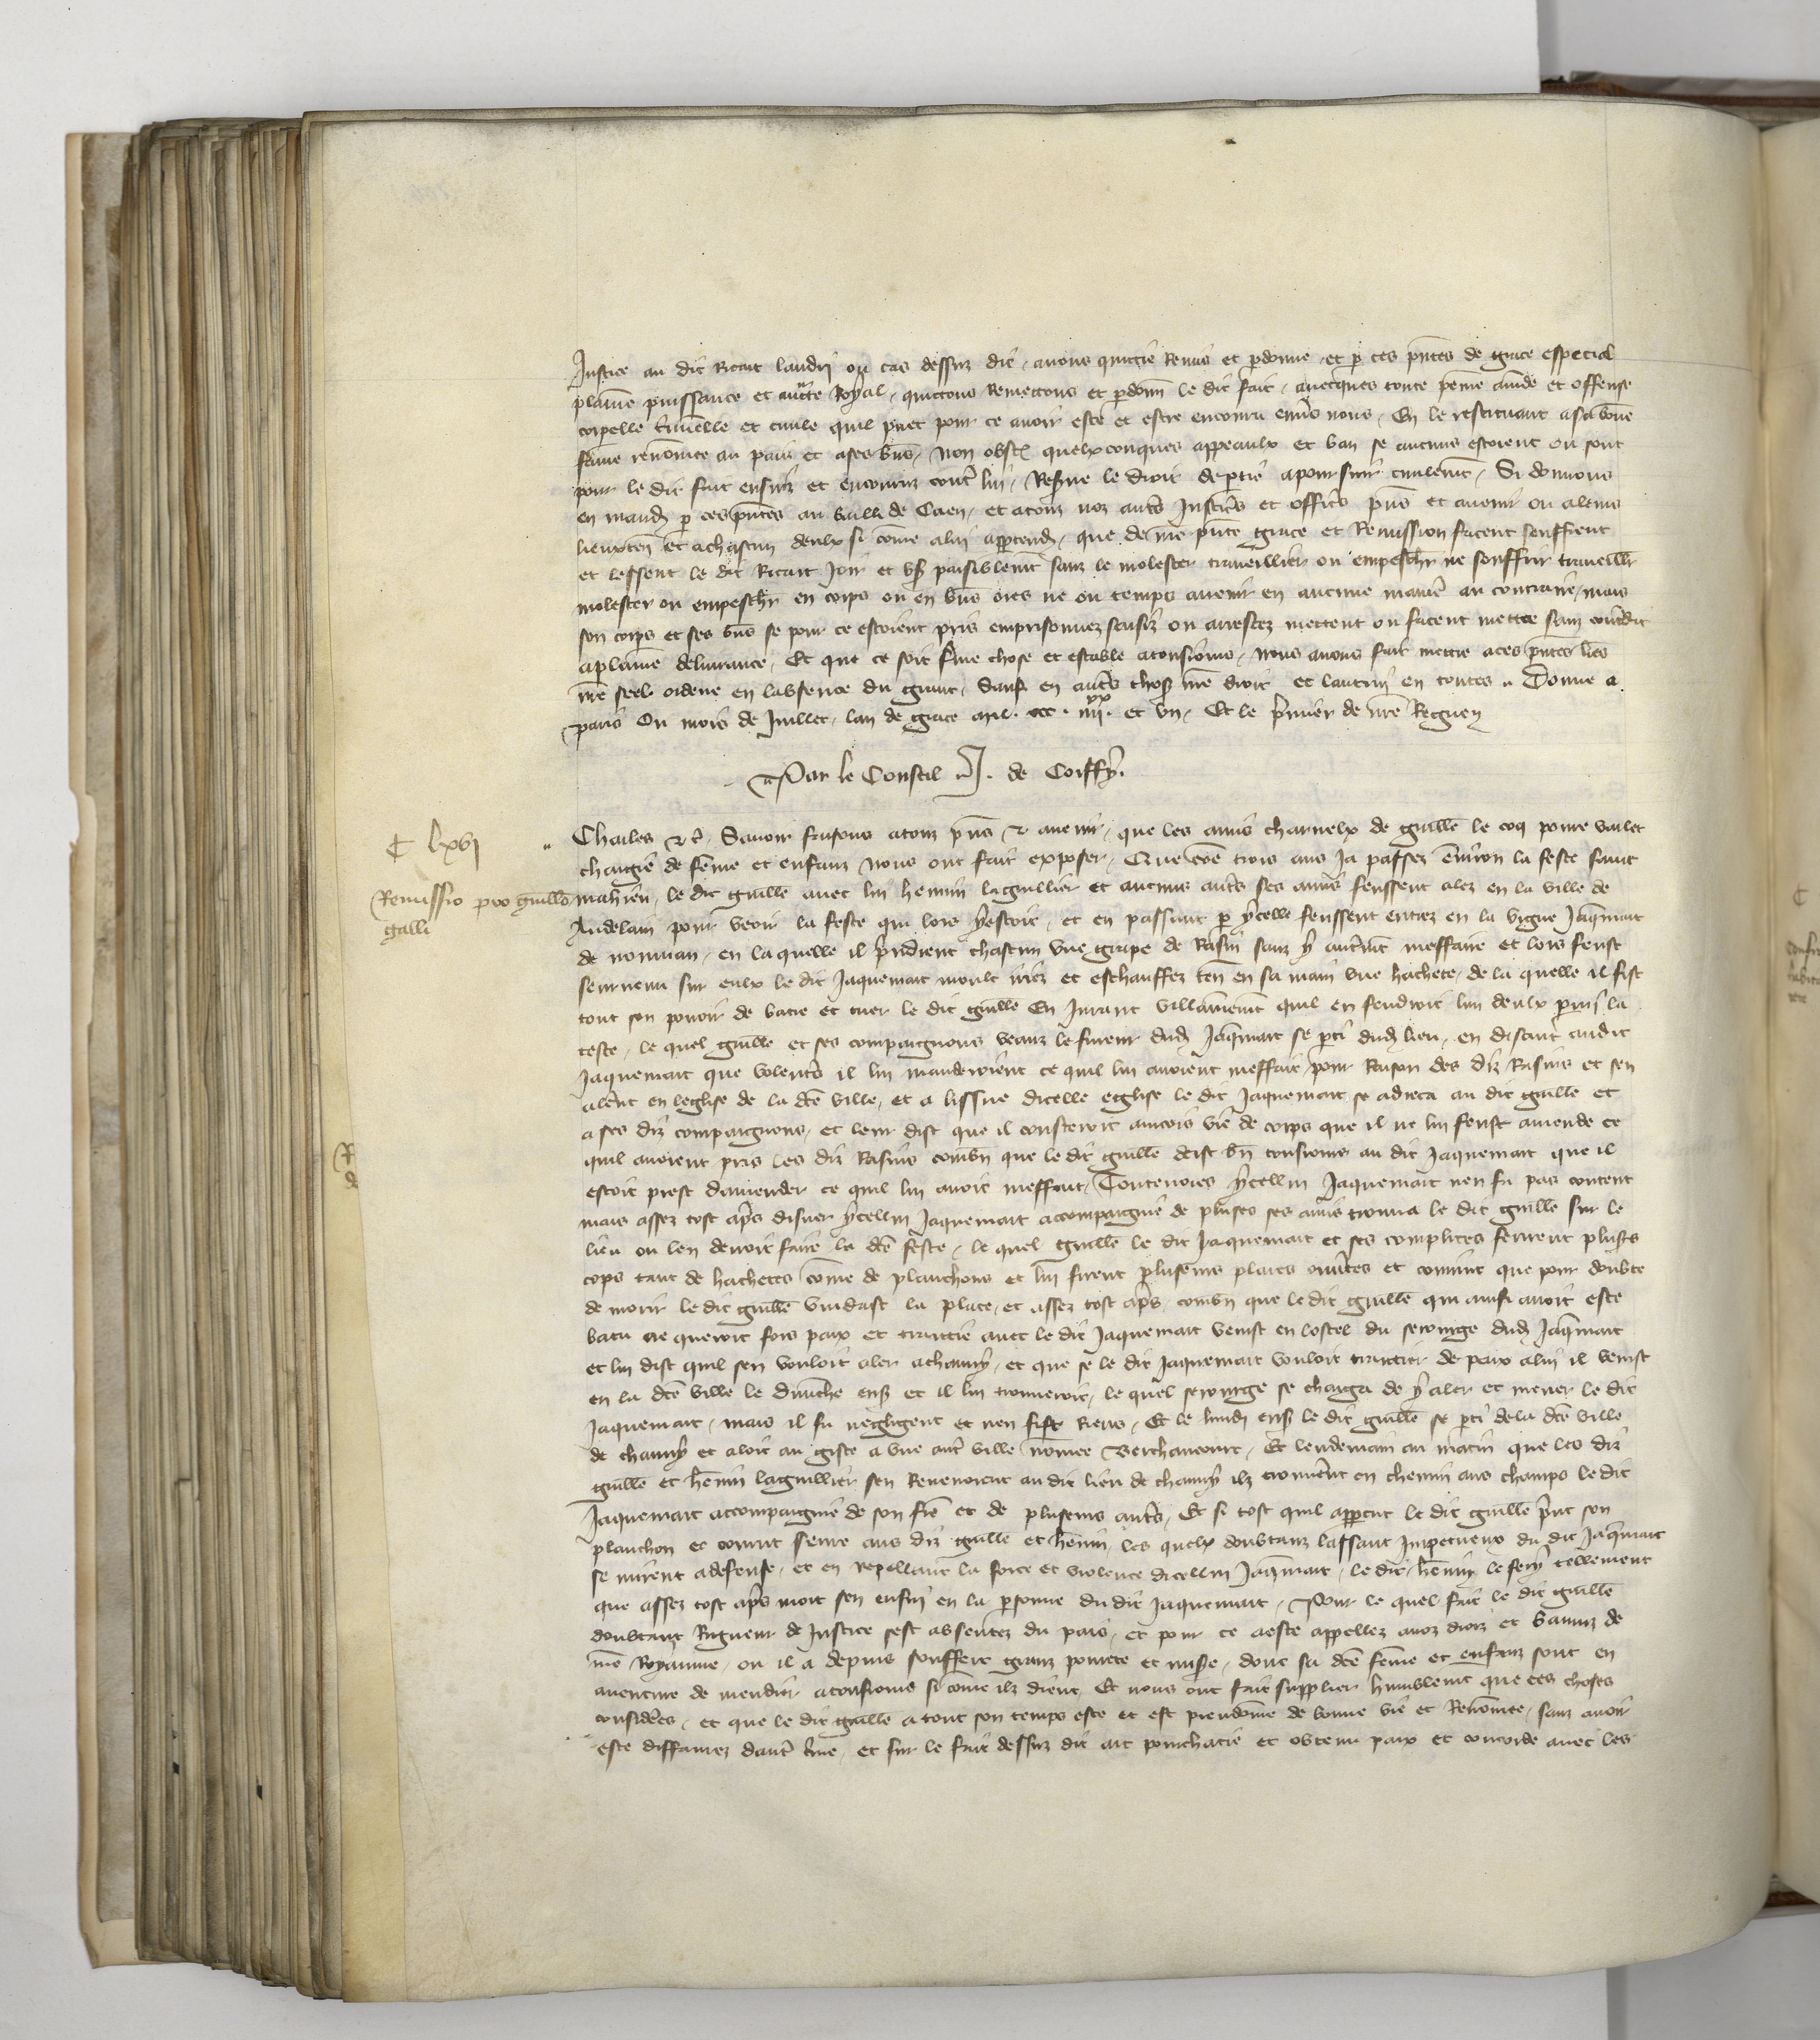 Justice au dit Ricart landri ou cas dessuz dit, avons quittie Remis et pdonne, et p ces pntes de grace especial
plaine puissance et aucte Royal, quittons Remettons et pdonns le dit fait, avecques toute peine amde et offense
corpelle criminelle et civile quil puet pour ce avoir este et estre encouru envs nous, En le restituant a sa bone
fame renomee au pais et a ses bns, Non obst quelxconques appeaulx et ban se aucuns estoient ou sont
pour le dit fait ensuiz et encouruz contre lui, Reserve le droit de ptie a poursuir civilemt, Si donnons
en mand p ces pntes au bailli de Caen, et a touz noz autres Justiciers et officiers pns et avenir ou a leurs
lieuxten et a chascun deulx si come a lui appartend, que de nre pnte grace et Remission facent seuffrent
et lessent le dit Ricart Joir et user paisiblemt sanz le molester traveillier ou empeschr ne souffrir traveillr
molester ou empeschr en corps ou en bns ores ne ou temps avenir en aucune maniere au contraire, mais
son corps et ses bns se pour ce estoient pris emprisonnez saisiz ou arrestez mettent ou facent mettre sanz contredit
a plaine delivrance, Et que ce soit ferme chose et estable a tousiours, nous avons fait mettre a ces pntes lres
nre seel ordene en labsence du grant, Sauf en autres choses nre droit et lautrui en toutes. Donne a
paris Ou mois de Juillet, lan de grace mil. ccc. iiiixx. et un, Et le premier de nre Regne
Par le Conseil. J. de Coiffy.
C lxvi
Remissio pro guillo
galli
Charles &c. Savoir faisons a touz pns & avenir, que les amis charnelx de guille le coq povre varlet
chargie de feme et enfanz Nous ont fait exposer, Que come trois ans Ja passez environ la feste saint
mahieu, le dit guille avec lui hennin laguillier et aucuns autres ses amis feussent alez en la ville de
Andelain pour veoir la feste qui lors y estoit, et en passant p ycelle feussent entrez en la vigne Jaqmart
de nonnan, en la quelle il prindrent chascun une grape de Rasin sanz y autremt meffaire et lors feust
seurvenu sur eulx le dit Jaquemart moult iriez et eschauffez ten en sa main une hachete, de la quelle il fist
tout son povoir de batre et tuer le dit guille En Jurant villainemt quil en fendroit lun deulx parmi la
teste, le quel guille et ses compaignons veanz le fureur dud Jaqmart se parti dud lieu, en disant audit
Jaquemart que volentiers il lui manderoient ce quil lui avoient meffait, pour Raison des diz Rasins et sen
alerent en leglise de la dce ville, et a lissue dicelle eglise le dit Jaquemart se adreca au dit guille et
a ses diz compaignons, et leur dist que il cousteroit aincois vie de corps que il ne lui feust amende ce
quil avoient pris les diz Rasins combn que le dit guille deist bn tousiours au dit Jaquemart que il
estoit prest damender ce quil lui avoit meffait, Toutevoies ycellui Jaquemart nen fu pas content
mais assez tost apres disner ycellui Jaquemart accompaignie de pluses ses amis trouva le dit guille sur le
lieu ou len devoit faire la dce feste, le quel guille le dit Jaquemart et ses complices ferirent pluses
cops tant de hachetes come de planchons et lui firent pluseurs plaies ouvertes et convint que pour doubte
de morir le dit guille vuidast la place, et assez tost apres, combn que le dit guille qui ainsi avoit este
batu ne queroit fors paix et traittie avec le dit Jaquemart venist en lostel du serourge dud Jaqmart
et lui dist quil sen vouloit aler a chauny, et que se le dit Jaquemart vouloit traittier de paix a lui il venist
en la dce ville le dimenche ens et il lui trouveroit, le quel serourge se charga de y aler et mener le dit
Jaquemart, mais il fu negligent et nen fist Riens, Et le lundi ens le dit guille se parti de la dce ville
de chauny et aloit au giste a une autre ville nomee Berthaucourt, Et lendemain au matin que les diz
guille et hennin laguillier sen Revenoient au dit lieu de chauny ilz trouverent en chemin aus champs le dit
Jaquemart accompaignie de son frere et de pluseurs autres, Et si tost quil appercut le dit guille print son
planchon et courut seure aus diz guille et hennin, les quelx doubtanz lassaut Impetueux du dit Jaqmart
se mirent a defense, et en repellant la force et violence dicellui Jaqmart, le dit hennin le fery tellement
que assez tost apres mort sen ensui en la psonne du dit Jaquemart, Pour le quel fait le dit guille
doubtant Rigueur de Justice sest absentez du pais, et pour ce a este appellez a noz droiz et banniz de
nre Royaume, ou il a depuis souffert granz povrete et misere, dont sa dce feme et enfanz sont en
aventure de mendier a tousiours si come ilz dient, Et nous ont fait supplier humblemt que ces choses
considerees, et que le dit guille a tout son temps este et est preudome de bonne vie et Renomee, sanz avoir
este diffamez dautre crime, et sur le fait dessuz dit ait pourchacie et obtenu paix et concorde avec les